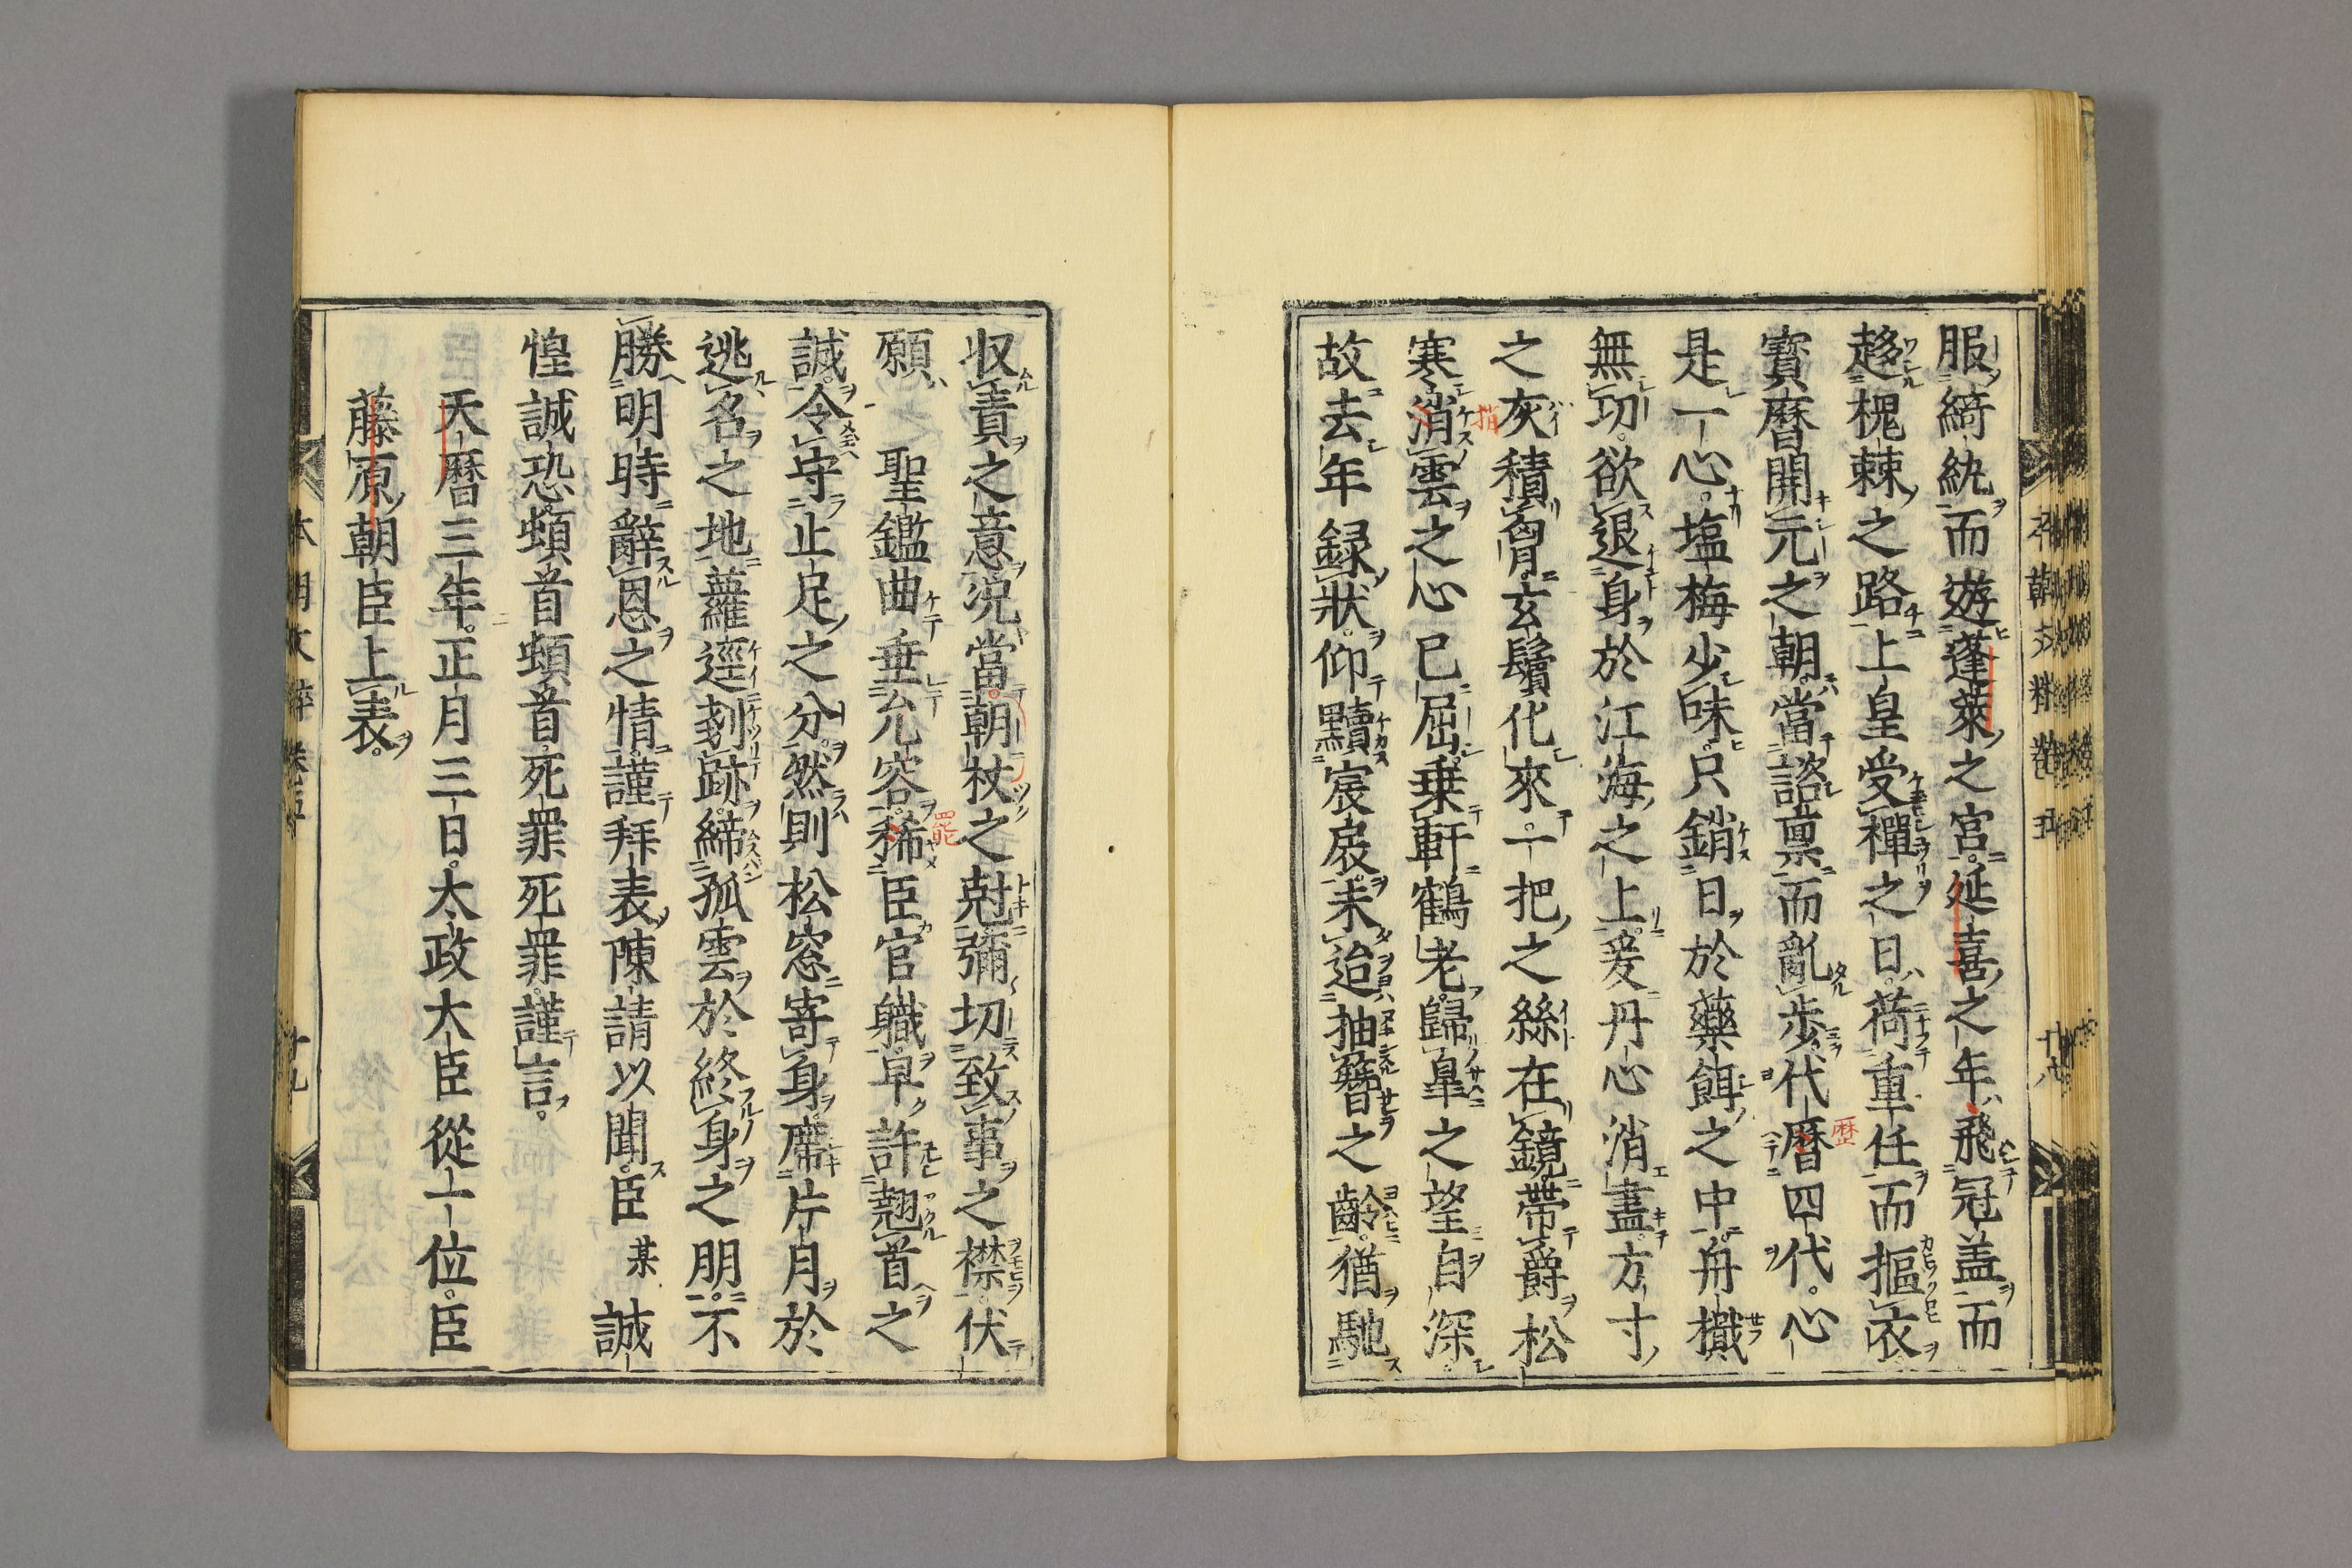 服綺紈而遊蓬萊之宮延喜之年飛冠盖而
趍槐棘之路上皇受禪之日荷重任而摳衣
寳暦開元之朝當諮禀而亂步代暦四代心
是一心塩梅少味只銷日於藥餌之中舟檝
無功欲退身於江海之上爰丹心消盡方寸
之灰積胷玄鬚化來一把之絲在鏡帶爵松
寒消雲之心已屈乗軒鶴老歸皐之望自深
故去年録狀仰黷宸扆未迨抽簪之齡猶馳
収責之意況當朝杖之尅彌切致事之襟伏
願聖鑑曲垂允容稀臣官職早許翹首之
誠令守止足之分然則松窓寄身席片月於
逃名之地蘿逕刻跡締孤雲於終身之朋不
勝明時辭恩之情謹拜表陳請以聞臣某誠
惶誠恐頓首頓首死罪死罪謹言
天暦三年正月三日太政大臣從一位臣
藤原朝臣上表
罷
指
歴
本朝文粹卷五
十九